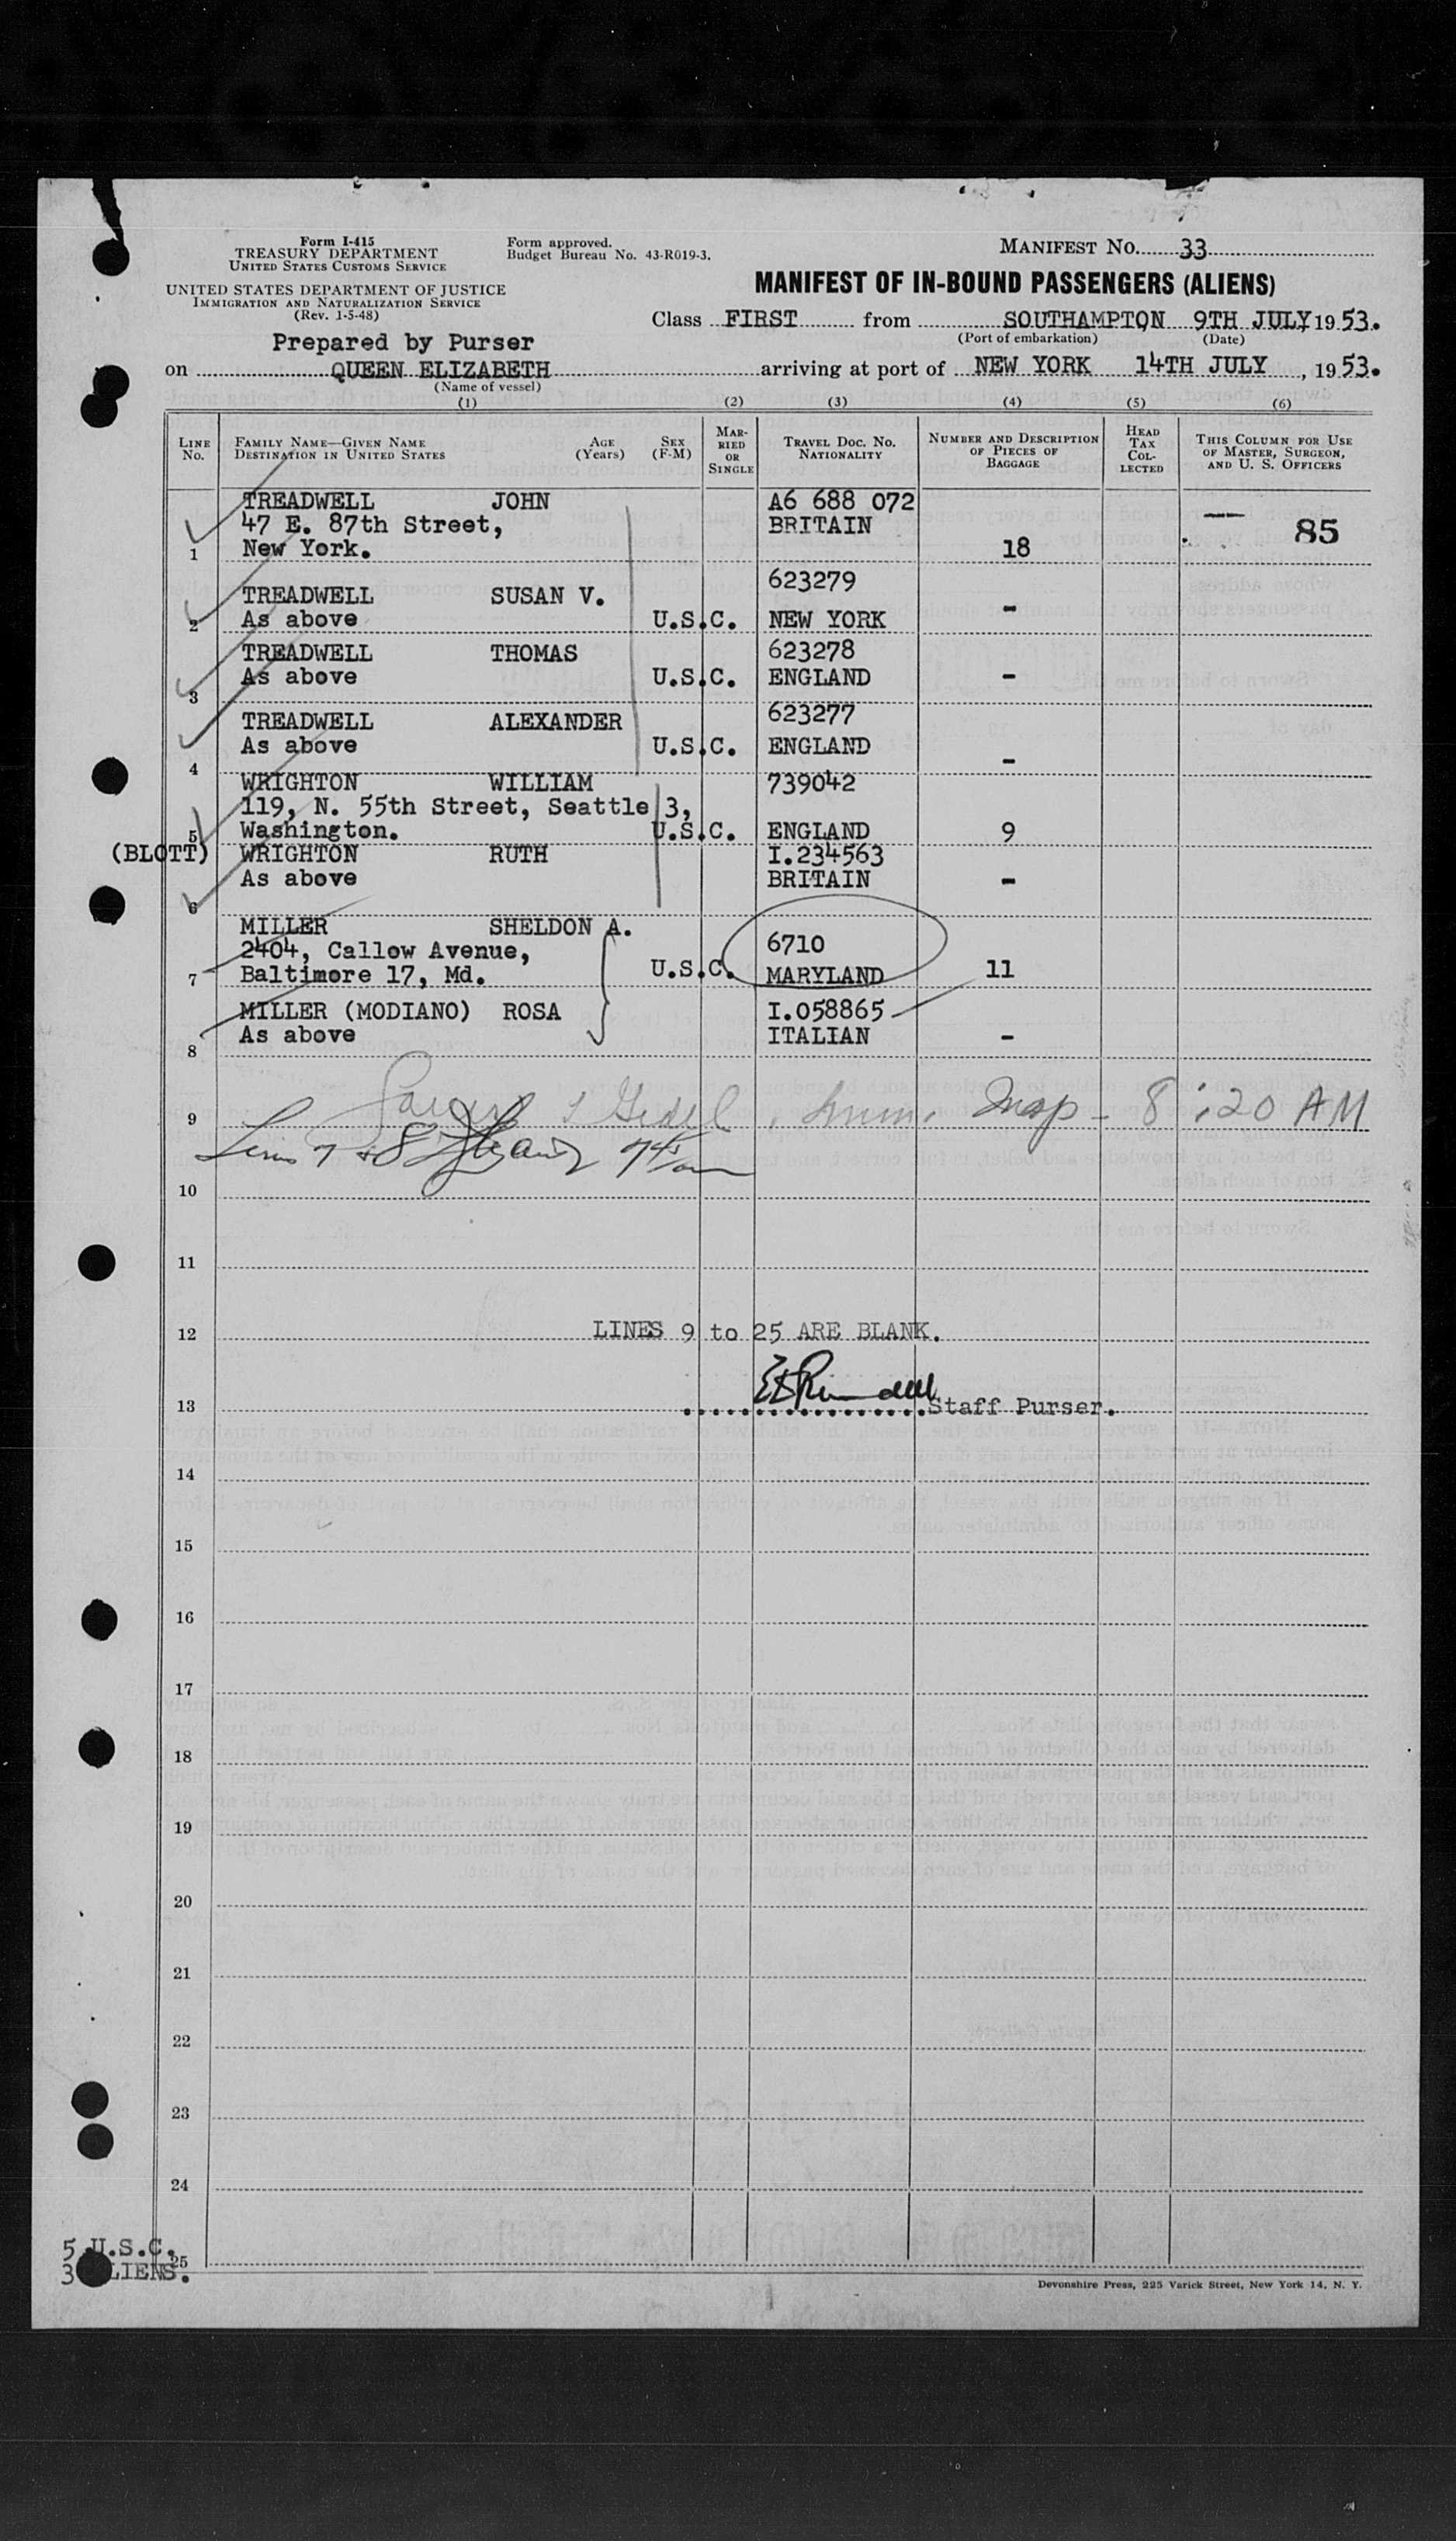 Form I-415
TREASURY DEPARTMENT
UNITED STATES CUSTOMS SERVICE
UNITED STATES DEPARTMENT OF JUSTICE
IMMIGRATION AND NATURALIZATION SERVICE
(Rev. 1-5-48)
Form approved.
Budget Bureau No. 43-R019-3.
MANIFEST NO. 33
MANIFEST OF IN-BOUND PASSENGERS (ALIENS)
Class FIRST from SOUTHAMPTON 9TH JULY 1953.
(Port of embarkation) (Date)
Prepared by Purser
on QUEEN ELIZABETH arriving at port of NEW YORK 14TH JULY, 1953.
(Name of vessel)
(1) (2) (3) (4) (5) (6)
LINE NO.
FAMILY NAME—GIVEN NAME
DESTINATION IN UNITED STATES
AGE (Years)
SEX (F-M)
MARRIED OR SINGLE
TRAVEL DOC. NO. NATIONALITY
NUMBER AND DESCRIPTION OF PIECES OF BAGGAGE
HEAD TAX COLLECTED
THIS COLUMN FOR USE OF MASTER, SURGEON, AND U. S. OFFICERS
TREADWELL JOHN A6 688 072
47 E. 87th Street, BRITAIN 85
1 New York. 18
623279
TREADWELL SUSAN V.
2 As above U.S.C. NEW YORK -
TREADWELL THOMAS 623278
As above U.S.C. ENGLAND -
3
TREADWELL ALEXANDER 623277
As above U.S.C. ENGLAND
4 -
WRIGHTON WILLIAM 739042
119, N. 55th Street, Seattle 3,
5 Washington. U.S.C. ENGLAND 9
(BLOTT) WRIGHTON RUTH I.234563
As above BRITAIN -
6
MILLER SHELDON A.
2404, Callow Avenue, 6710
7 Baltimore 17, Md. U.S.C. MARYLAND 11
MILLER (MODIANO) ROSA I.058865
As above ITALIAN -
8
Imm. Insp - 8:20 AM
9
Lines 7 + 8
10
11
12 LINES 9 to 25 ARE BLANK.
13 Staff Purser.
14
15
16
17
18
19
20
21
22
23
24
5 U.S.C. 25
3 ALIENS.
Devonshire Press, 225 Varick Street, New York 14, N. Y.